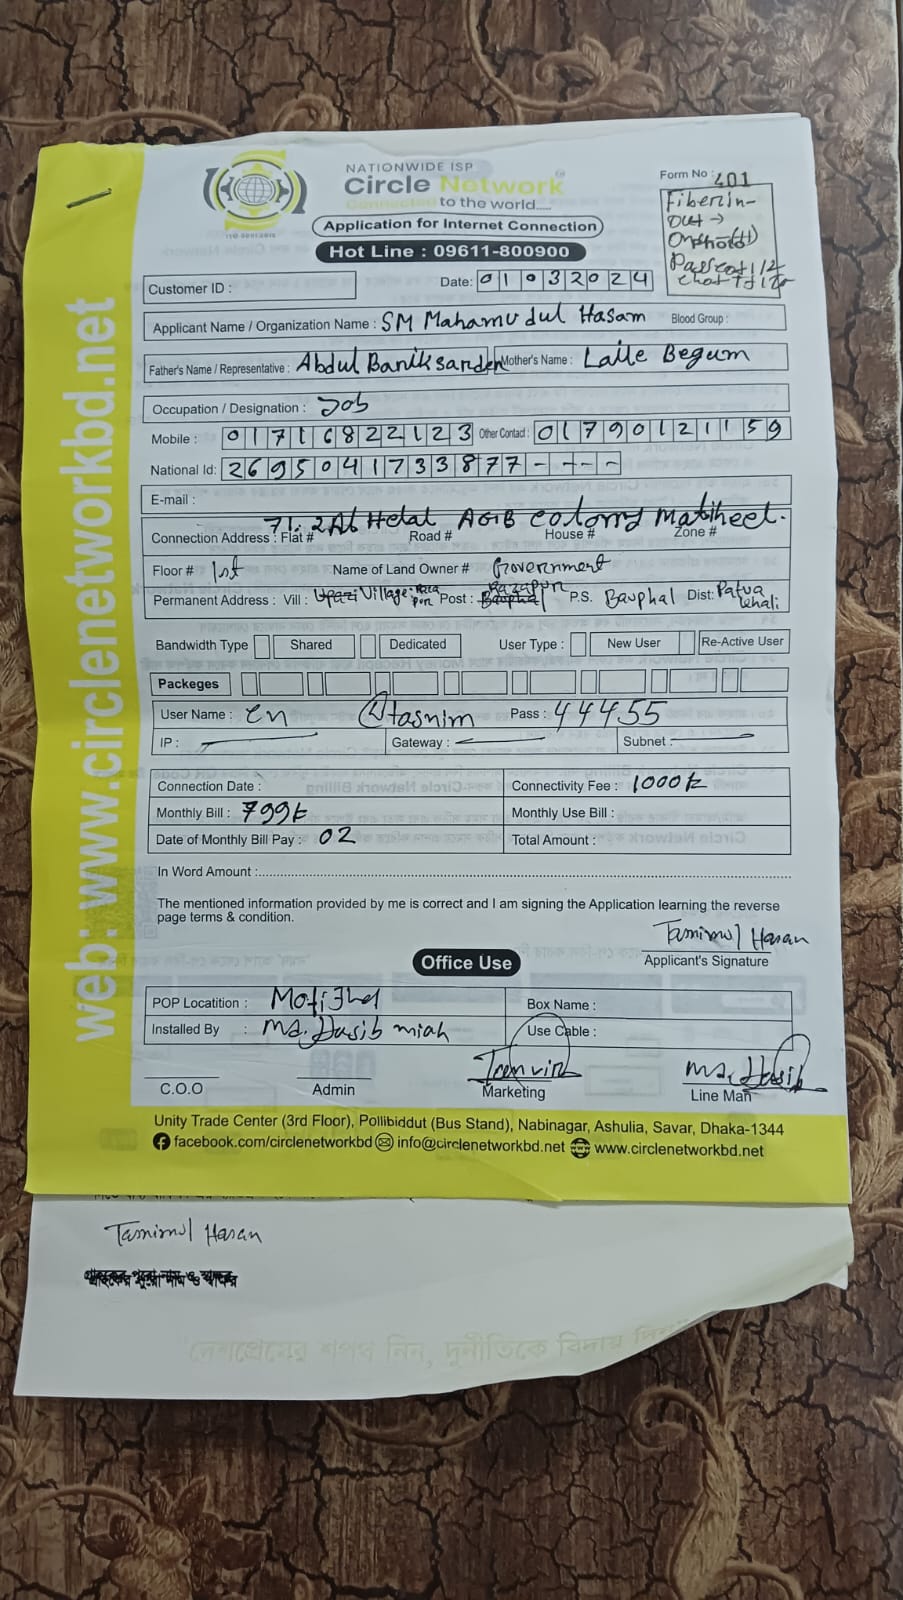 NATIONWIDE ISP
Circle Network
Connected to the world.....
Application for Internet Connection
Hot Line : 09611-800900
Form No : 401
Fiber in-
out →
Customer ID :
Date: 01032024
Applicant Name / Organization Name : SM Mahamudul Hasam Blood Group :
Father's Name / Representative : Abdul Mother's Name : Laile Begum
Occupation / Designation : Job
Mobile : 01716822123 Other Contact : 01790121159
National Id: 2695041733877----
E-mail :
Connection Address : Flat # Road # House # Zone #
71. AGB colony
Floor # 1st Name of Land Owner # Government
Permanent Address : Vill : Village: Post : P.S. Bauphal Dist: Patua
khali
Bandwidth Type Shared Dedicated User Type : New User Re-Active User
Packeges
User Name : cn @tasnim Pass : 44455
IP : Gateway : Subnet :
Connection Date : Connectivity Fee : 1000tk
Monthly Bill : 799tk Monthly Use Bill :
Date of Monthly Bill Pay : 02 Total Amount :
In Word Amount :
The mentioned information provided by me is correct and I am signing the Application learning the reverse
page terms & condition.
Tamimul Hasan
Applicant's Signature
Office Use
POP Locatition : Motijhel Box Name :
Installed By : Md. Hasib miah Use Cable :
Tanvir Md. Hasib
C.O.O Admin Marketing Line Man
Unity Trade Center (3rd Floor), Pollibiddut (Bus Stand), Nabinagar, Ashulia, Savar, Dhaka-1344
facebook.com/circlenetworkbd info@circlenetworkbd.net www.circlenetworkbd.net
web: www.circlenetworkbd.net
Tamimul Hasan
দেশপ্রেমের শপথ নিন, দুর্নীতিকে বিদায় দিন